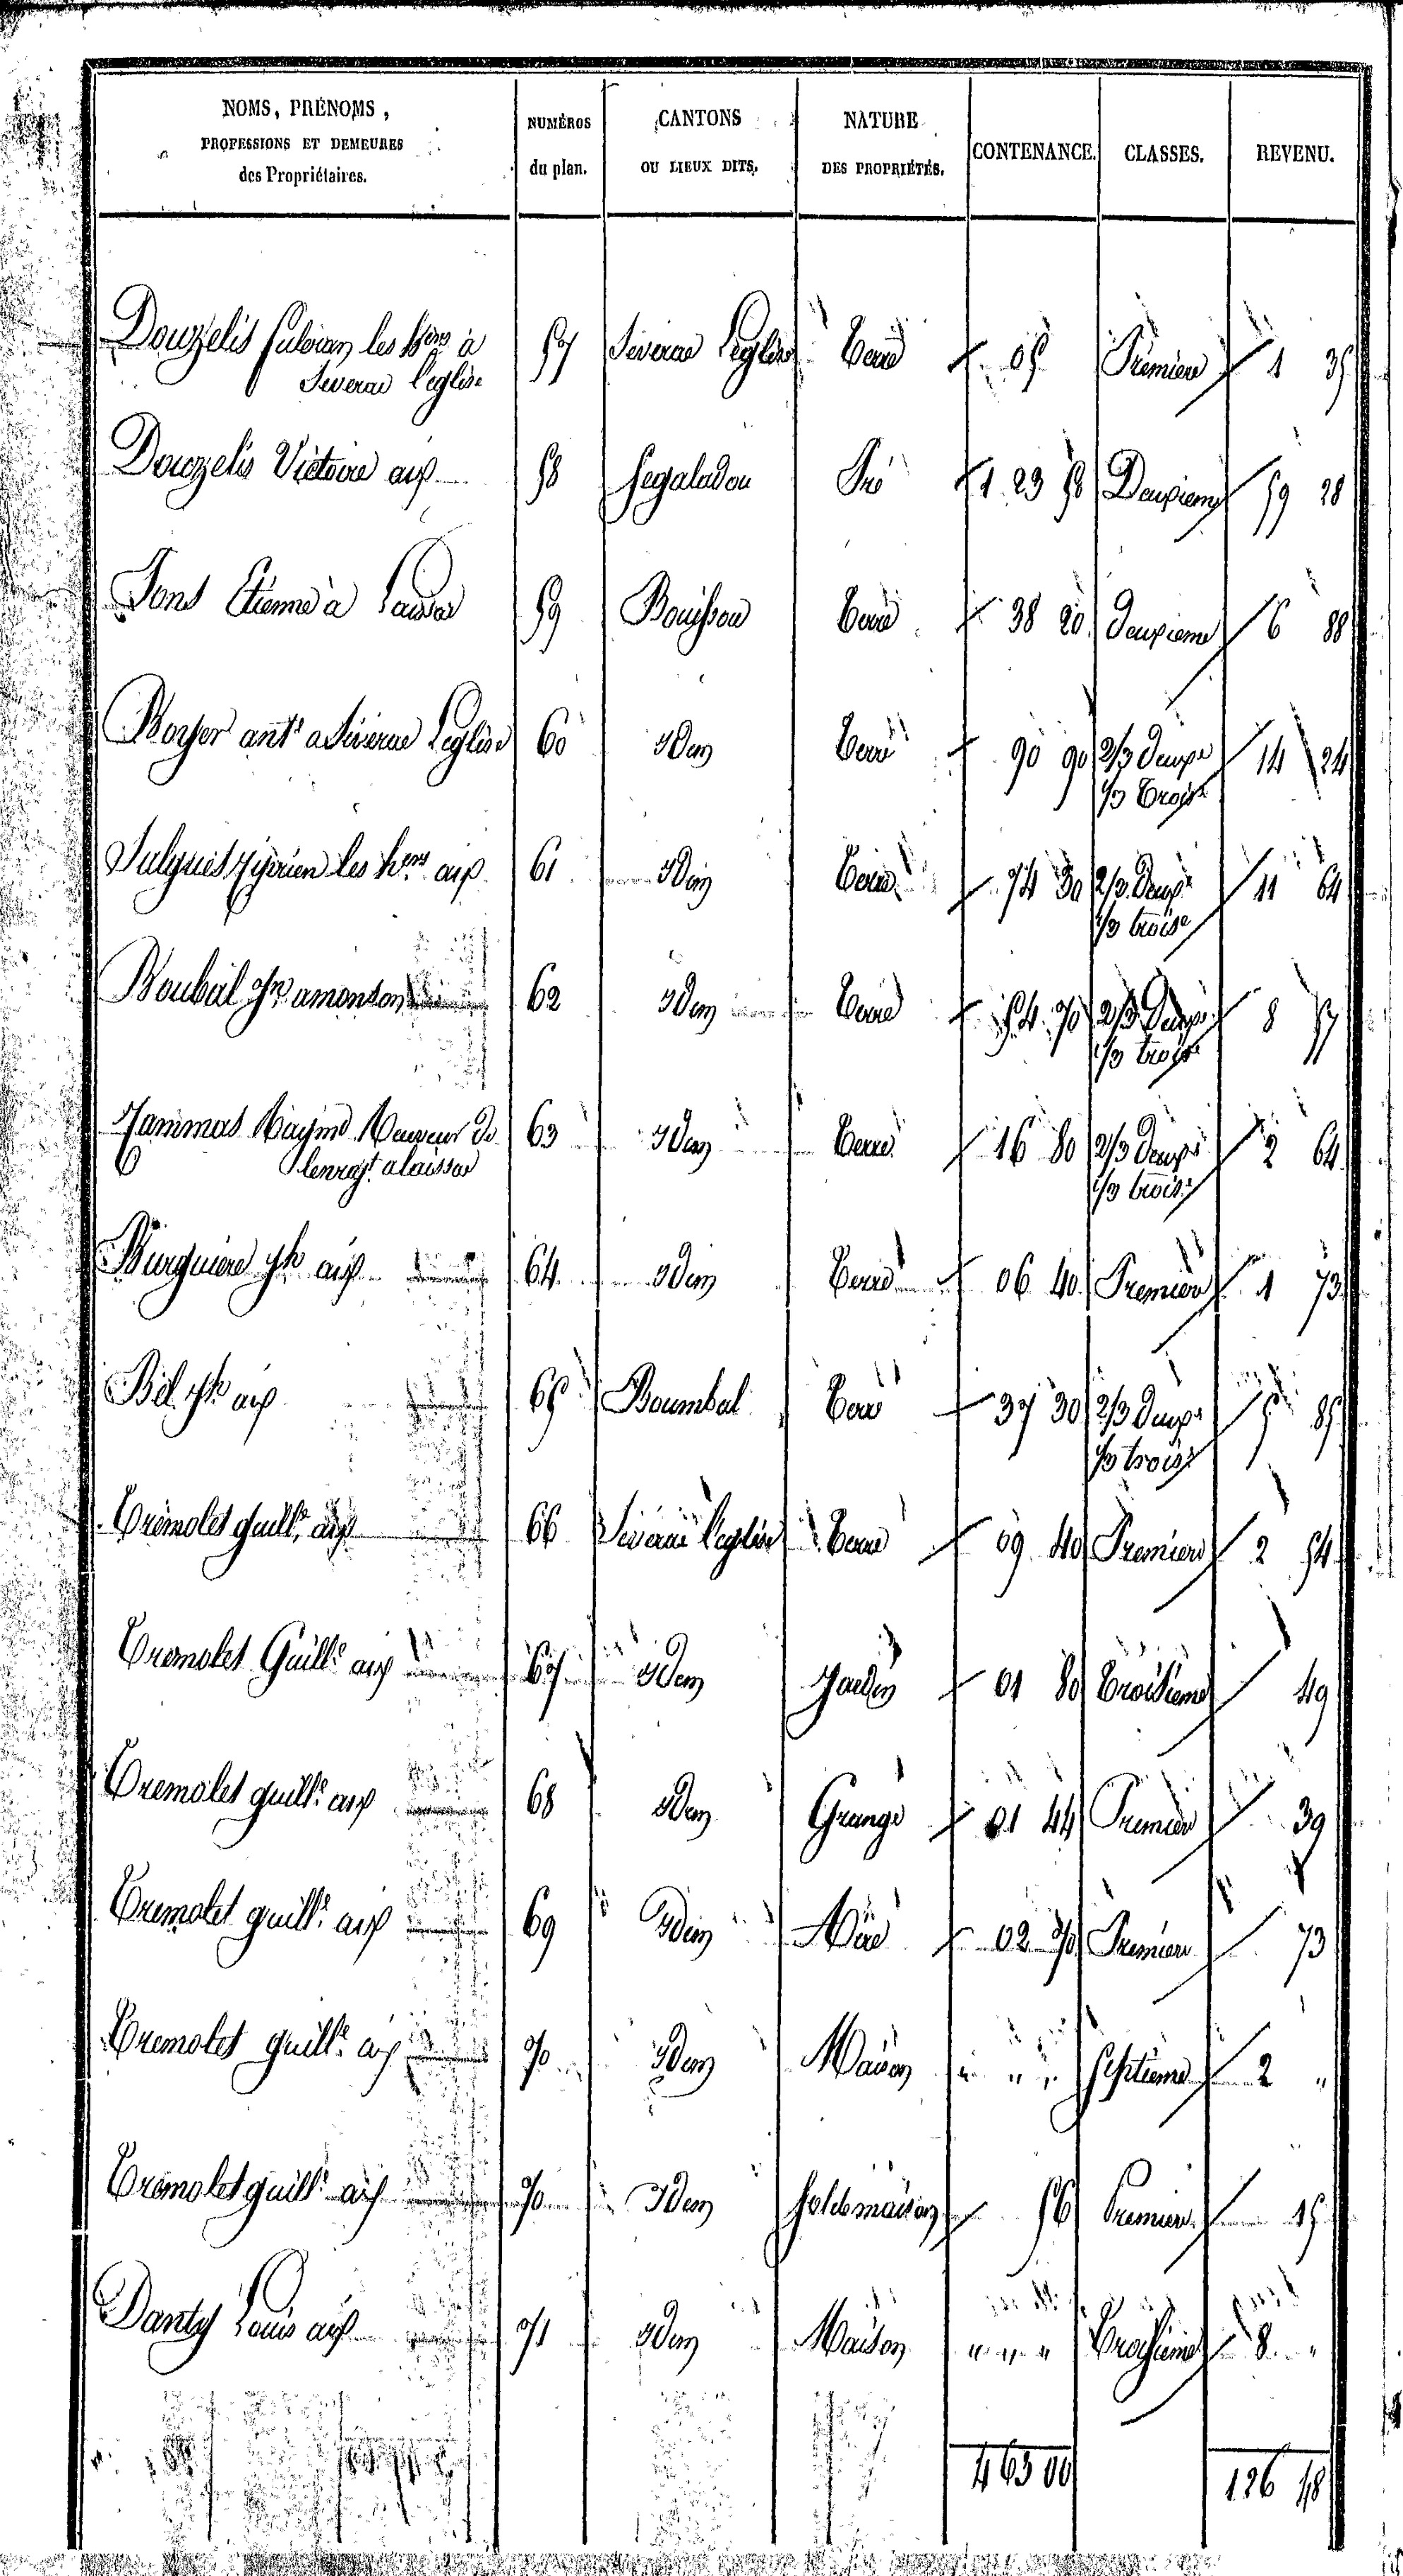 NOMS, PRÉNOMS, PROFESSIONS ET DEMEURES des Propriétaires. NUMÉROS du plan. CANTONS OU LIEUX DITS. NATURE DES PROPRIÉTÉS. CONTENANCE. CLASSES. REVENU.
Douzelis les hers à 57 Séverac l'eglise Terre 05 Première 1 35
Severac l'eglise
Douzelis Victoire aip 58 Segaladou Pré 1 23 50 Deuxieme 59 28
Fons Etienne à Laissac 59 Bouissou Terre 38 20 deuxieme 6 88
Boyer ant.e a Séverac l'eglise 60 Idem Terre 90 90 2/3 deuxe 14 24
1/3 Troise
les hers aip 61 Idem Terre 74 30 2/3 Deuxe 11 64
1/3 troise
62 Idem Terre 54 70 2/3 Deuxe 8 57
1/3 troise
Jammas Raymd Receveur de 63 Idem Terre 16 80 2/3 Deuxe 2 64
l'enregt. a laissac
Burguiere Jh aip 64 Idem Terre 06 40 Premiere 1 73
Bel Jh aip 65 Boumbal Terre 37 30 2/3 Deuxe 5 85
1/3 troise
Tremolet guille. aip 66 Séverac l'eglise Terre 09 40 Premiere 2 54
Tremolet Guille aip 67 Idem Jardin 01 80 Troisieme 49
Tremolet guille. aip 68 Idem Grange 01 44 Premiere 39
Tremolet guille. aip 69 Idem Aire 02 70 Premiere 73
Tremolet guille. aip 70 Idem Maison " " " Septieme 2 "
Tremolet guille. aip 70 Idem Sol de maison 56 Premiere 15
Danty Louis aip 71 Idem Maison " " " Troisieme 8 "
4 63 00 126 48